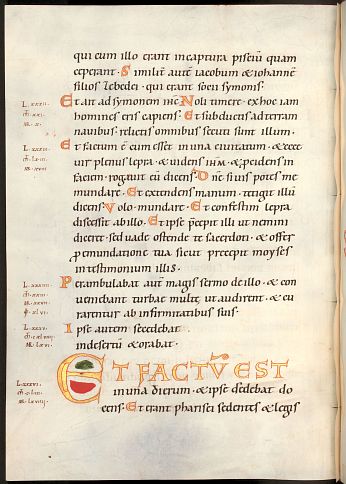 qui cum illo erant in captura pisciū quam
ceperant · Similit̄ autē iacobum & iohannē
filios zebedei · qui erant socii symonis·
Et ait ad symonem ih̄c Noli timere · ex hoc iam
homines eris capiens · Et subductis ad terram
navibus· relictis omnibus secuti sunt illum·
Et factum ē cum esset in una civitatum · & ecce
vir plenus lepra · & uidens ih̄m & p̄cidens in
faciem · rogavit eū dicens· Dn̄e si uis potes me
mundare · Et extendens manum · tetigit illū
dicens· Volo mundare · Et confestim lepra
discessit ab illo · Et ipse p̄cepit illi ut nemini
diceret · sed uade ostende te sacerdoti · & offer
p̄ emundatione tua sicut precepit moyses
in testimonium illis·
Perambulabat autē magis sermo de illo · & con
veniebant turbae multę ut audirent · & cu
rarentur ab infirmitatibus suis·
Ipse autem secedebat
in desertū & orabat·
ET FACTV̄ EST
in una dierum · & ipse sedebat do
cens· Et erant pharisei sedentes & legis
L· xxxii·
L· xxxiii·
L· xxxiiii·
L· xxxv·
L· xxxvi·